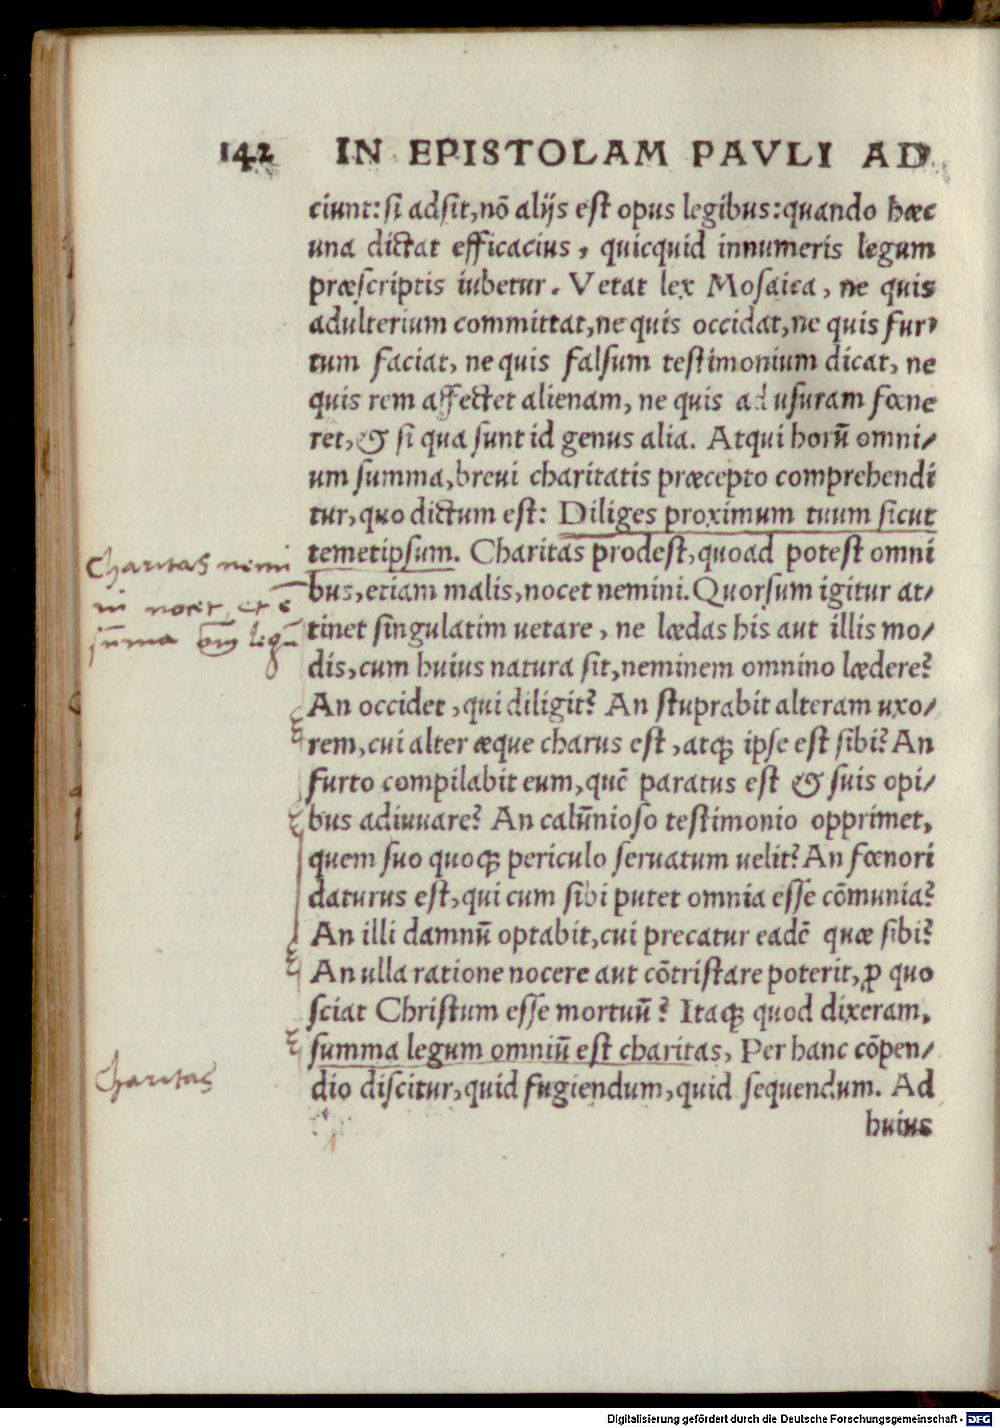 142 IN EPISTOLAM PAVLI AD
ciunt: si adsit, nõ alijs est opus legibus: quando hæc
una dictat efficacius, quicquid innumeris legum
præscriptis iubetur. Vetat lex Mosaica, ne quis
adulterium committat, ne quis occidat, ne quis fur⸗
tum faciat, ne quis falsum testimonium dicat, ne
quis rem affectet alienam, ne quis ad usuram fœne
ret, & si qua sunt id genus alia. Atqui horũ omni/
um summa, breui charitatis præcepto comprehendi
tur, quo dictum est: Diliges proximum tuum sicut
temetipsum. Charitas prodest, quoad potest omni
bus, etiam malis, nocet nemini. Quorsum igitur at/
tinet singulatim uetare, ne lædas his aut illis mo/
dis, cum huius natura sit, neminem omnino lædere?
An occidet, qui diligit? An stuprabit alteram uxo/
rem, cui alter æque charus est, atqȝ ipse est sibi? An
furto compilabit eum, quẽ paratus est & suis opi/
bus adiuuare? An calũnioso testimonio opprimet,
quem suo quoqȝ periculo seruatum uelit? An fœnori
daturus est, qui cum sibi putet omnia esse cõmunia?
An illi damnũ optabit, cui precatur eadẽ quæ sibi?
An ulla ratione nocere aut cõtristare poterit, ꝓ quo
sciat Christum esse mortuũ? Itaqȝ quod dixeram,
summa legum omniũ est charitas, Per hanc cõpen/
dio discitur, quid fugiendum, quid sequendum. Ad
huius
Charitas nemi
ni nocet, et ē
sũma om̃ legũ
Charitas
Digitalisierung gefördert durch die Deutsche Forschungsgemeinschaft - DFG